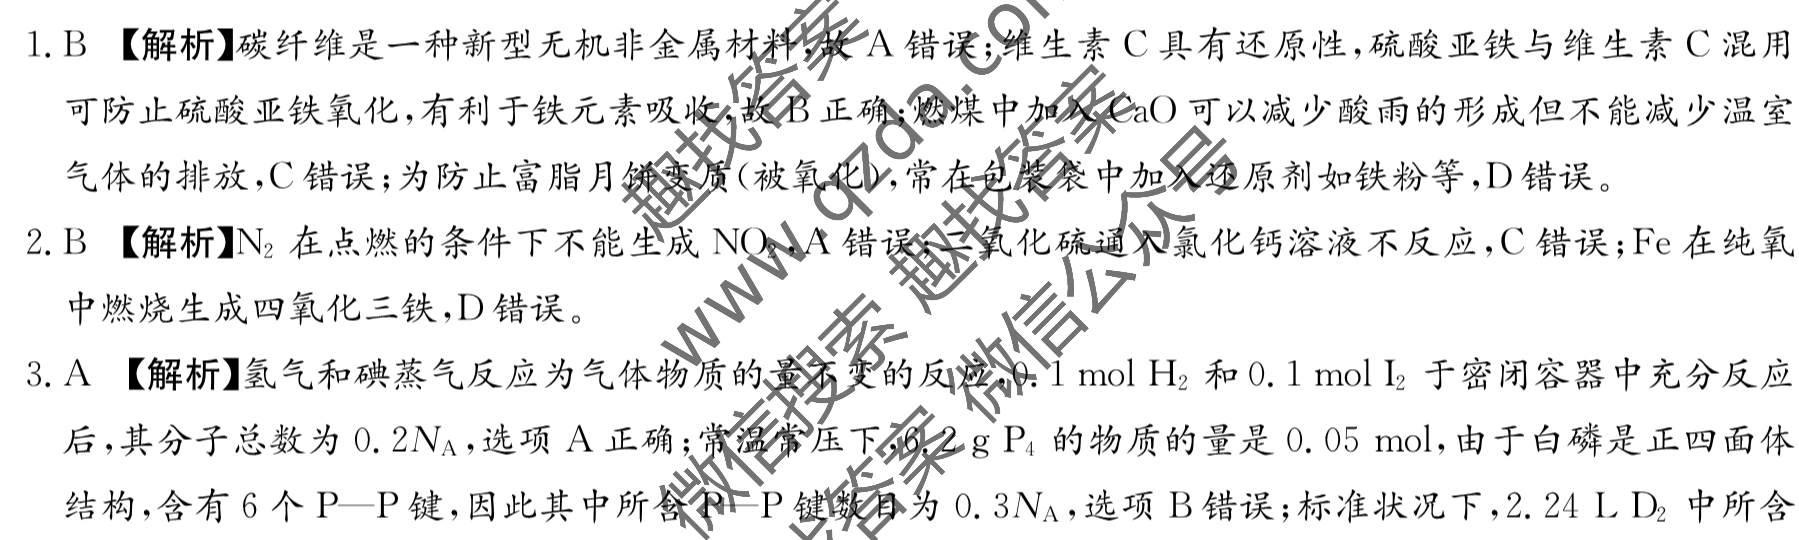 1. B 【解析】碳纤维是一种新型无机非金属材料,故 A 错误;维生素 C 具有还原性,硫酸亚铁与维生素 C 混用
可防止硫酸亚铁氧化,有利于铁元素吸收,故 B 正确;燃煤中加入 CaO 可以减少酸雨的形成但不能减少温室
气体的排放,C 错误;为防止富脂月饼变质(被氧化),常在包装袋中加入还原剂如铁粉等,D 错误。
2. B 【解析】N₂ 在点燃的条件下不能生成 NO₂,A 错误;二氧化硫通入氯化钙溶液不反应,C 错误;Fe 在纯氧
中燃烧生成四氧化三铁,D 错误。
3. A 【解析】氢气和碘蒸气反应为气体物质的量不变的反应,0.1 mol H₂ 和 0.1 mol I₂ 于密闭容器中充分反应
后,其分子总数为 0.2N_A,选项 A 正确;常温常压下,6.2 g P₄ 的物质的量是 0.05 mol,由于白磷是正四面体
结构,含有 6 个 P—P 键,因此其中所含 P—P 键数目为 0.3N_A,选项 B 错误;标准状况下,2.24 L D₂ 中所含
趣找答案
www.qzda.com
微信搜索 趣找答案
答案 微信公众号